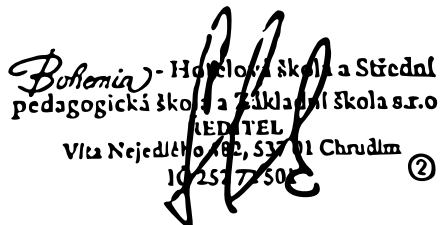 Bohemia - Hotelová škola a Střední
pedagogická škola a Základní škola s.r.o
ŘEDITEL
Víta Nejedlého 482, 537 01 Chrudim
IČ
②